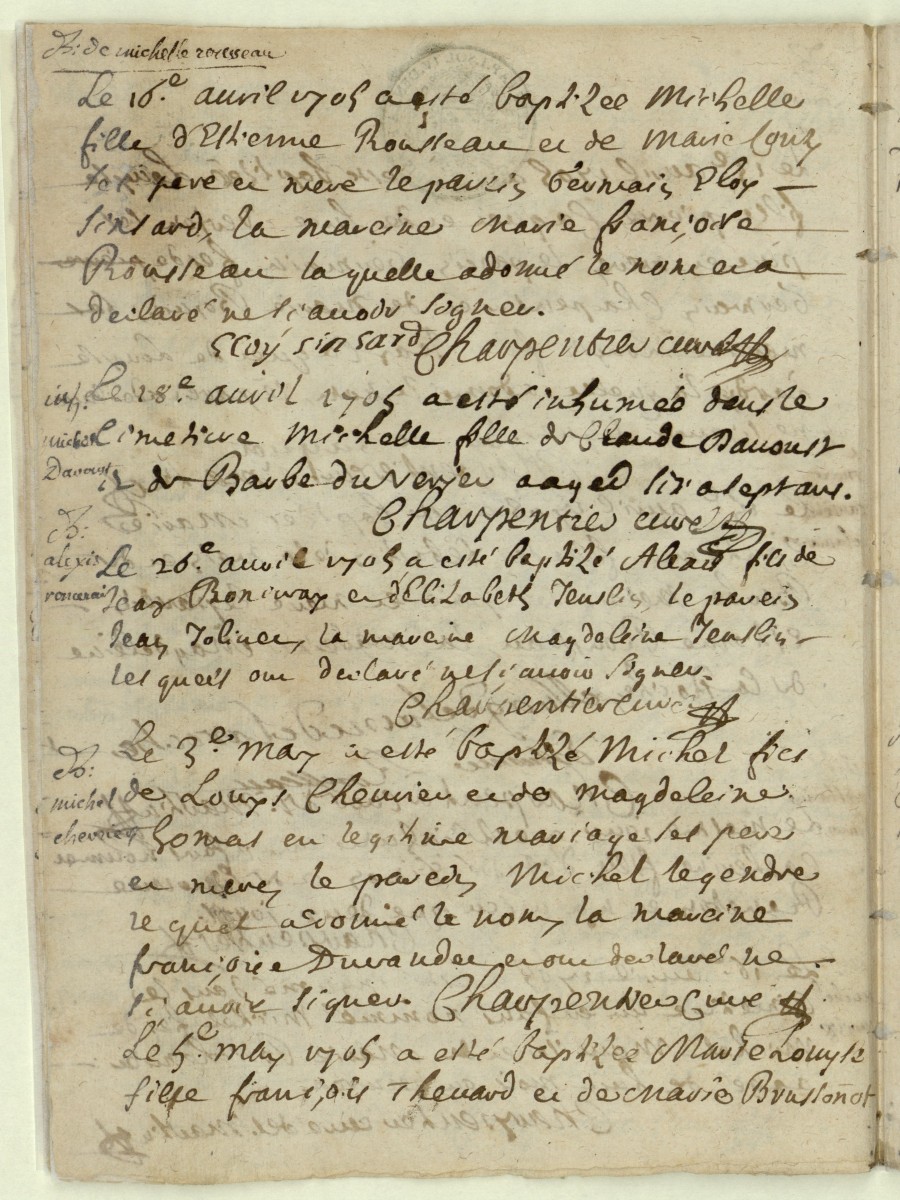 B: de michelle rousseau
Le 16.e auril 1705 a esté baptizée Michelle
fille d'Estienne Rousseau et de Marie
ses pere et mere le parein Germain Eloy
Sinsard, la mareine Marie françoise
Rousseau laquelle a donné le nom et a
declaré ne scauoir signer.
Eloy sinsard Charpentier curé
inh: Le 18.e auril 1705 a esté inhumée dans le
michel cimetiere Michelle fille de Claude Dauoust
Dauoust et de Barbe du agée six a sept ans.
Charpentier curé
B:
alexis Le 26.e auril 1705 a esté baptizé Alexis fils de
Jean et d'Elizabeth le parein
Jean la mareine Magdeleine
lesquels ont declaré ne scauoir signer.
Charpentier curé
Le 3.e May a esté baptizé Michel fils
B: de Louys Cheurier et de Magdeleine
michel
en legitime mariage ses pere
et mere, le parein Michel legendre
lequel a donné le nom, la mareine
françoise et ont declaré ne
scauoir signer. Charpentier Curé
Le 5.e may 1705 a esté baptizée Marie Louyse
fille françois Thenard et de Marie